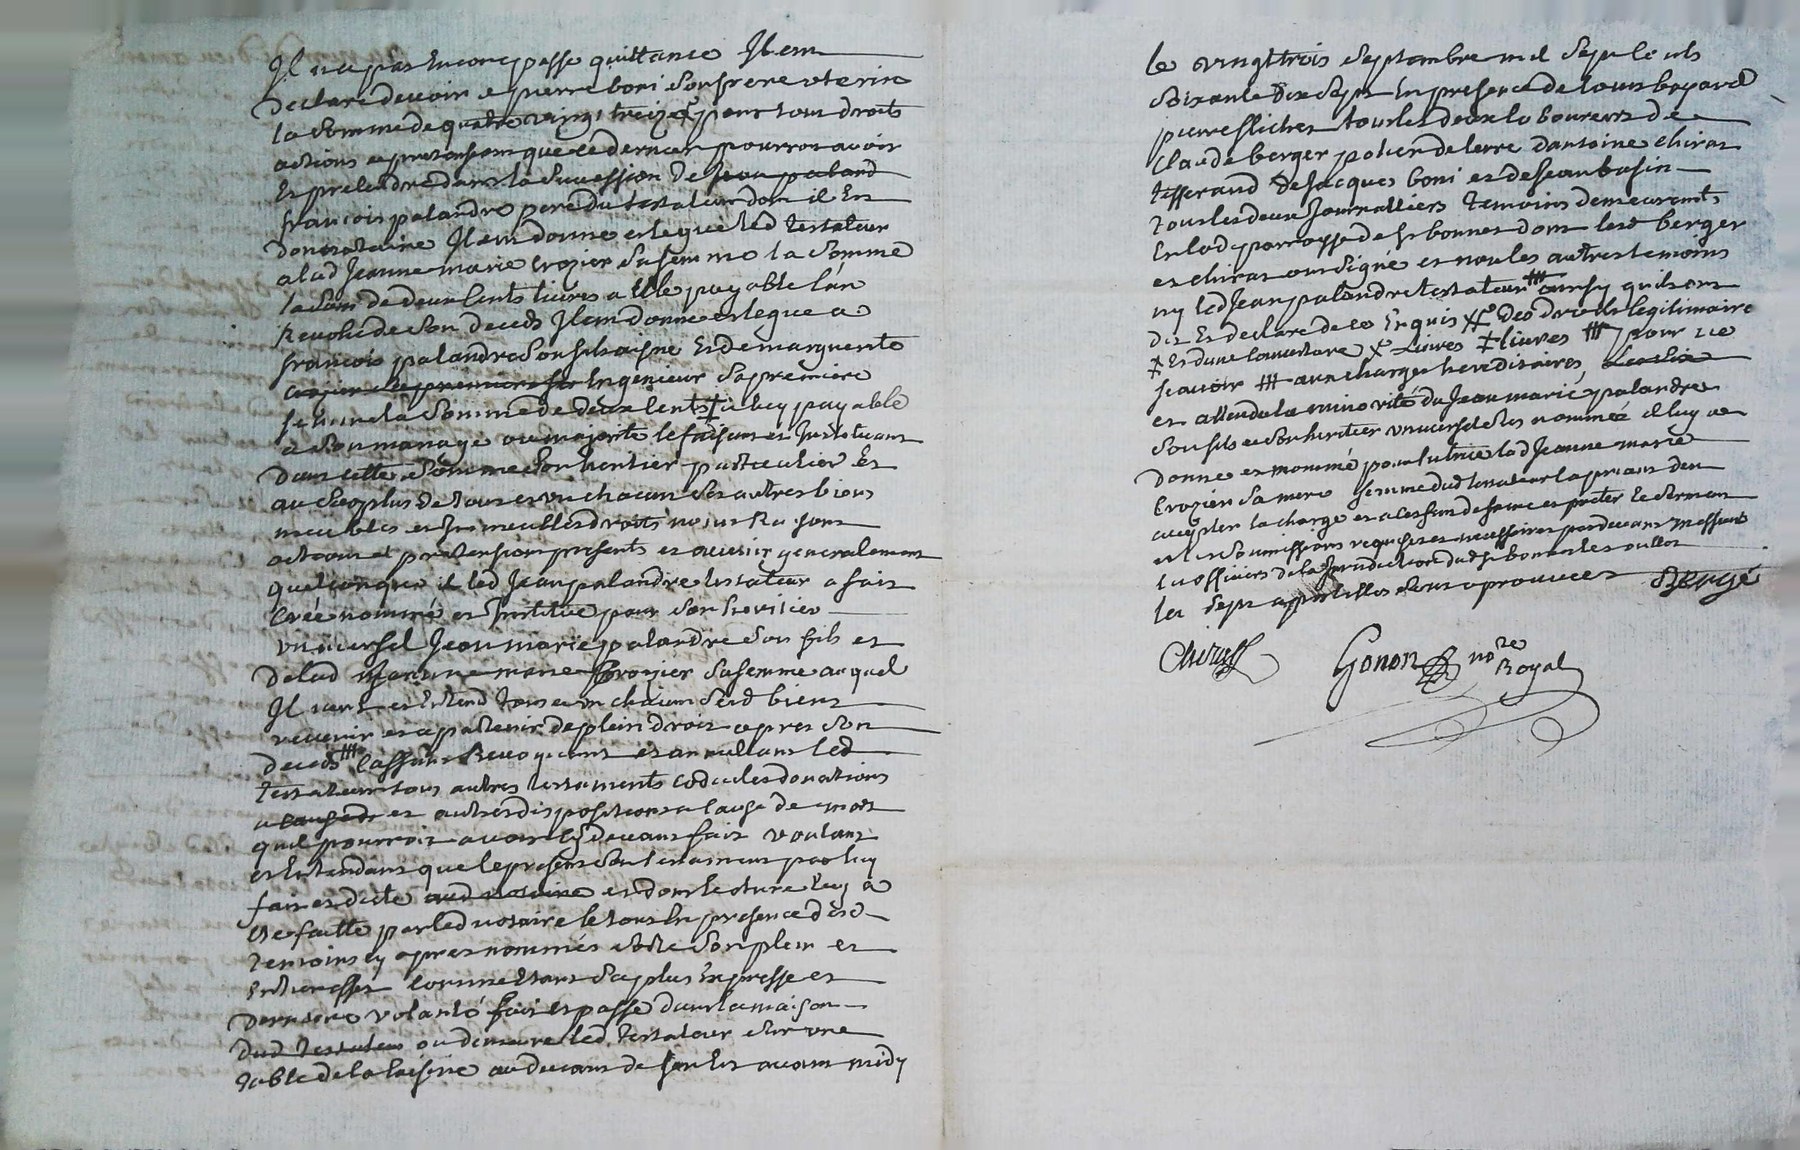 Il n'a pas encore passe quittance Item
Declare devoir a pierre boni son frere uterin
la somme de quatre vingt treize ₶ pour tous droits
actions et pretensions que ce dernier pourroit avoir
Et pretendre dans la succession de jean paland
francois palandre pere du testateur dont il Est
donnataire Item donne et legue led testateur
a lad Jeanne marie Crozier sa femme la somme
la som de deux cents livres a Elle payable l'an
Revolu de son deceds Item donne et legue a
francois palandre son fils aisne Et de marguerite
Ingenieur sa premiere
femme la somme de deux cents ‡ a luy payable
a son mariage ou majorité le faisant et Instituant
dans cette somme son heritier particulier Et
au surplus de tous et un chacun ses autres biens
meubles et Immeubles droits noms Raisons
actions et pretension presents et avenir generalement
quelconque il led Jean palandre testateur a fait
Créé nommé et Institué pour son heritier
universel Jean marie palandre son fils et
de lad Jeanne marie Crozier sa femme auquel
Il veut et Entend tous et un chacun sesd biens
revenir et apartenir de plein droit apres son
deceds ⵌ Cassant Revoquant et annullant led
testateur tous autres testaments codiciles donations
a cause de et autres dispositions a cause de mort
quil pourroit avoir cy devant fait voulant
et Entendant que le present son testament par luy
fait et dicté aud notaire et dont lecture luy a
Eté faitte par led notaire le tout En presence desd
temoins cy apres nommés sorte son plein et
Entier effet comme Etant sa plus Expresse et
derniere volonté fait Et passé dans la maison
dud testateur ou demeure led testateur sur une
table de la cuisine au devant de four Et avant midy
le vingt trois septembre mil sept cents
soixante dix sept En presence de louis bayard
pierre flicher tous les deux laboureurs de
Claude berger potier de terre d'antoine chirat
tisserand de Jacques boni et de Jean basin
tous les deux Journalliers temoins demeurants
En lad parroisse de st bonnet dont lesd berger
et chirat ont signé et non les autres temoins
ny led Jean palandre testateur ainsy quils ont
dit Et declare de ce Enquis ‡ des droits legitimaire
‡ Et d'une couverture ‡ livres ‡ livres ⵌ pour ne
scavoir ⵌ aux charges hereditaires,
et attendu la minorité du Jean marie palandre
son fils et son heritier universel sus nommé il luy a
donne et nommé pour tutrice lad Jeanne marie
Crozier sa mere femme dud testateur la priant d'en
accepter la charge et a ces fins de faire et preter le serment
et les soumissions requises et necessaires par devant messieurs
les officiers de la jurisdiction dud st bonnet les oulles
les sept apostilles sont aprouvees Bergé
Chirat Gonon no.re
Royal